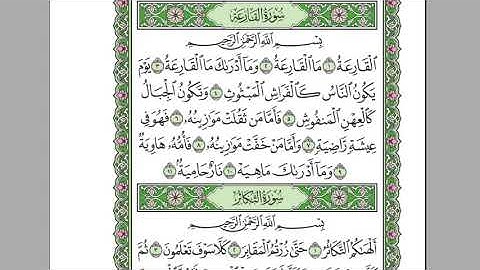 سُورَةُ القَارِعَةِ
بِسْمِ اللَّهِ الرَّحْمَٰنِ الرَّحِيمِ
الْقَارِعَةُ ١ مَا الْقَارِعَةُ ٢ وَمَا أَدْرَىٰكَ مَا الْقَارِعَةُ ٣ يَوْمَ
يَكُونُ النَّاسُ كَالْفَرَاشِ الْمَبْثُوثِ ٤ وَتَكُونُ الْجِبَالُ
كَالْعِهْنِ الْمَنفُوشِ ٥ فَأَمَّا مَن ثَقُلَتْ مَوَازِينُهُ ٦ فَهُوَ فِي
عِيشَةٍ رَّاضِيَةٍ ٧ وَأَمَّا مَنْ خَفَّتْ مَوَازِينُهُ ٨ فَأُمُّهُ هَاوِيَةٌ
٩ وَمَا أَدْرَىٰكَ مَا هِيَهْ ١٠ نَارٌ حَامِيَةٌ ١١
سُورَةُ التَّكَاثُرِ
بِسْمِ اللَّهِ الرَّحْمَٰنِ الرَّحِيمِ
أَلْهَىٰكُمُ التَّكَاثُرُ ١ حَتَّىٰ زُرْتُمُ الْمَقَابِرَ ٢ كَلَّا سَوْفَ تَعْلَمُونَ ٣ ثُمَّ